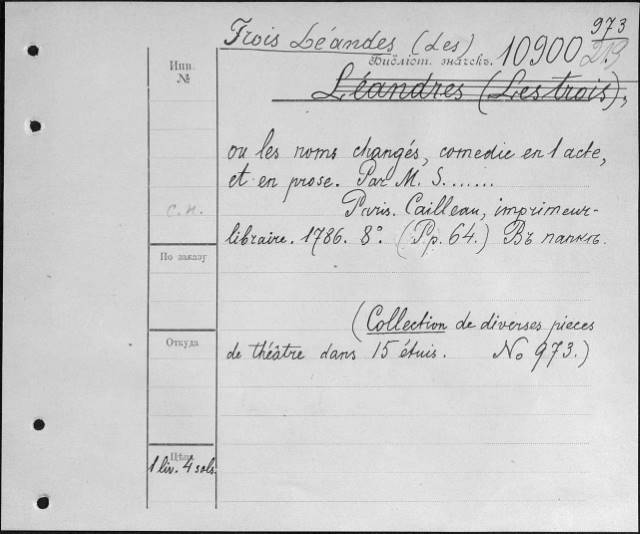 973
Trois Léandes (Les)
Инв. №
Библіот. значекъ. 10900 213
Léandres (Les trois),
ou les noms changés, comedie en 1 acte,
et en prose. Par M. S.......
с. н.
Paris. Cailleau, imprimeur-
libraire. 1786. 8°. (Pp. 64.) Въ папкѣ.
По заказу
(Collection de diverses pieces
Откуда
de théâtre dans 15 étuis. No 973.)
Цѣна
1 liv. 4 sols.